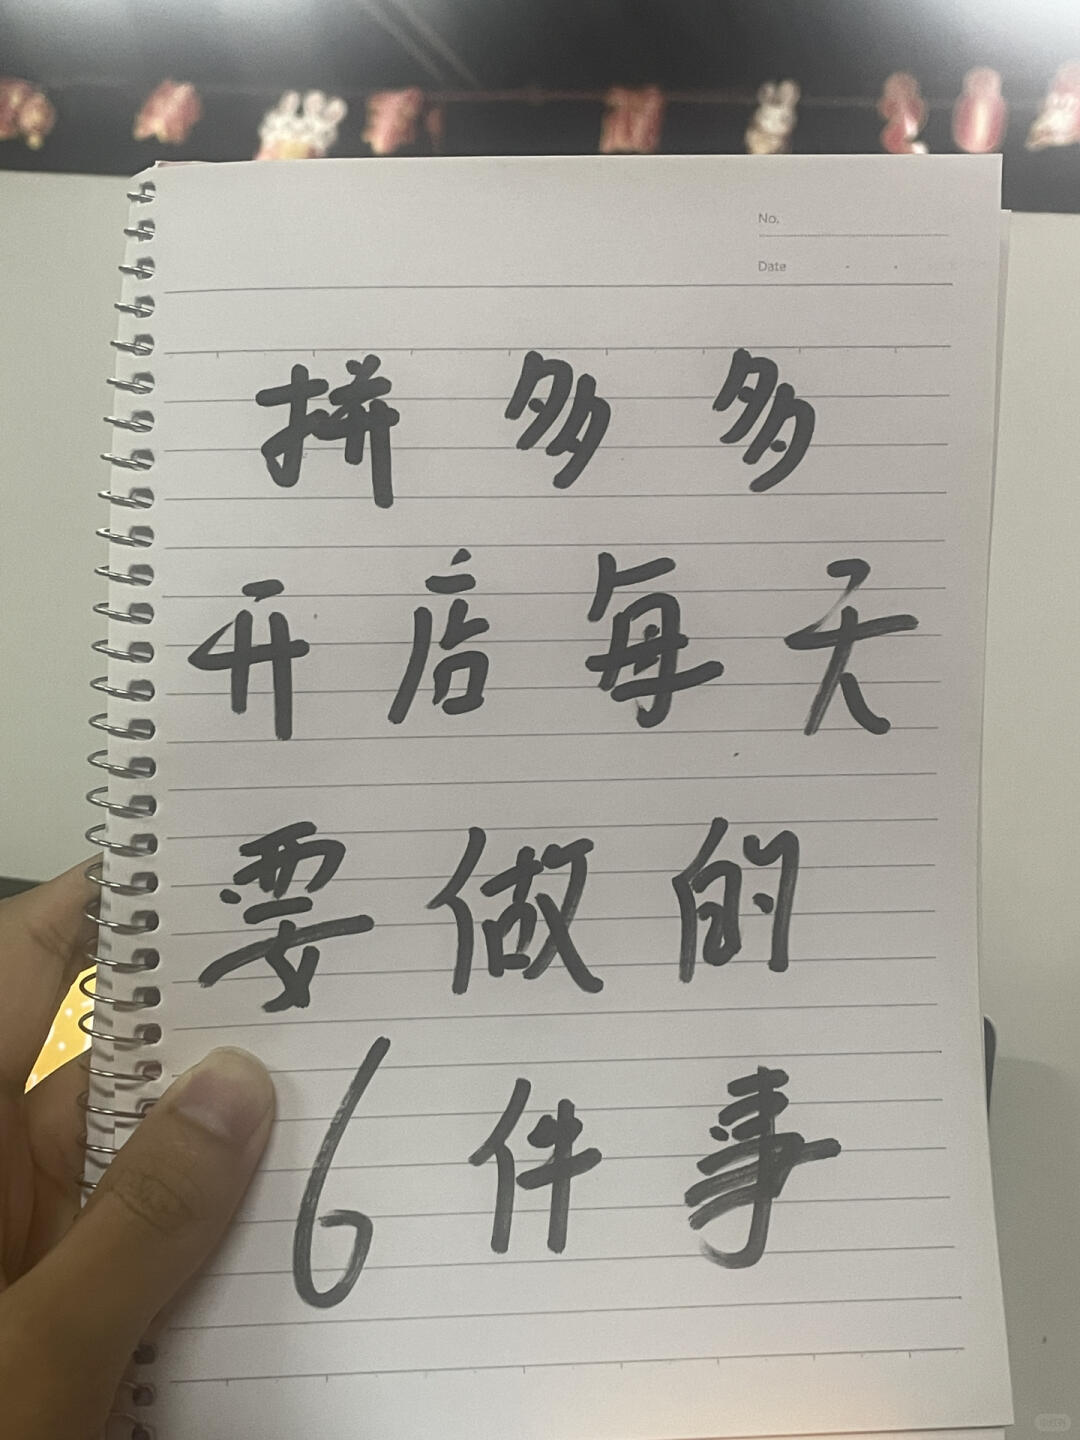 No.
Date
拼多多
开店每天
要做的
6件事